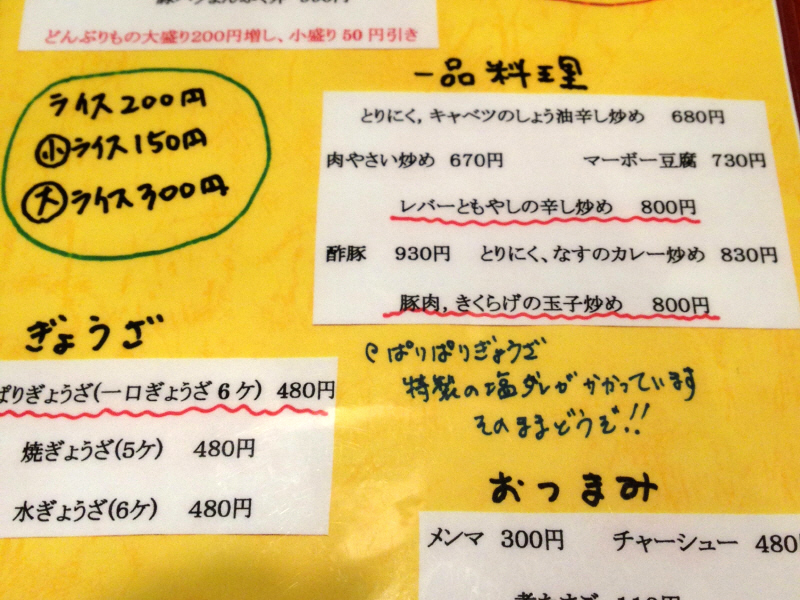 どんぶりもの大盛り200円増し、小盛り50円引き
ライス200円
小ライス150円
大ライス300円
一品料理
とりにく，キャベツのしょう油辛し炒め 680円
肉やさい炒め 670円 マーボー豆腐 730円
レバーともやしの辛し炒め 800円
酢豚 930円 とりにく、なすのカレー炒め 830円
豚肉，きくらげの玉子炒め 800円
ぎょうざ
ぱりぎょうざ(一口ぎょうざ6ケ) 480円
焼ぎょうざ(5ケ) 480円
水ぎょうざ(6ケ) 480円
ぱりぱりぎょうざ
特製の塩ダレがかかっています
そのままどうぞ!!
おつまみ
メンマ 300円 チャーシュー 480